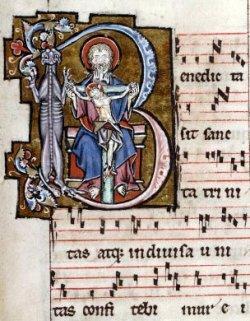 Benedic ta
sit sanc
ta tri ni
tas atq; indiuisa u ni
tas confi tebi mur e